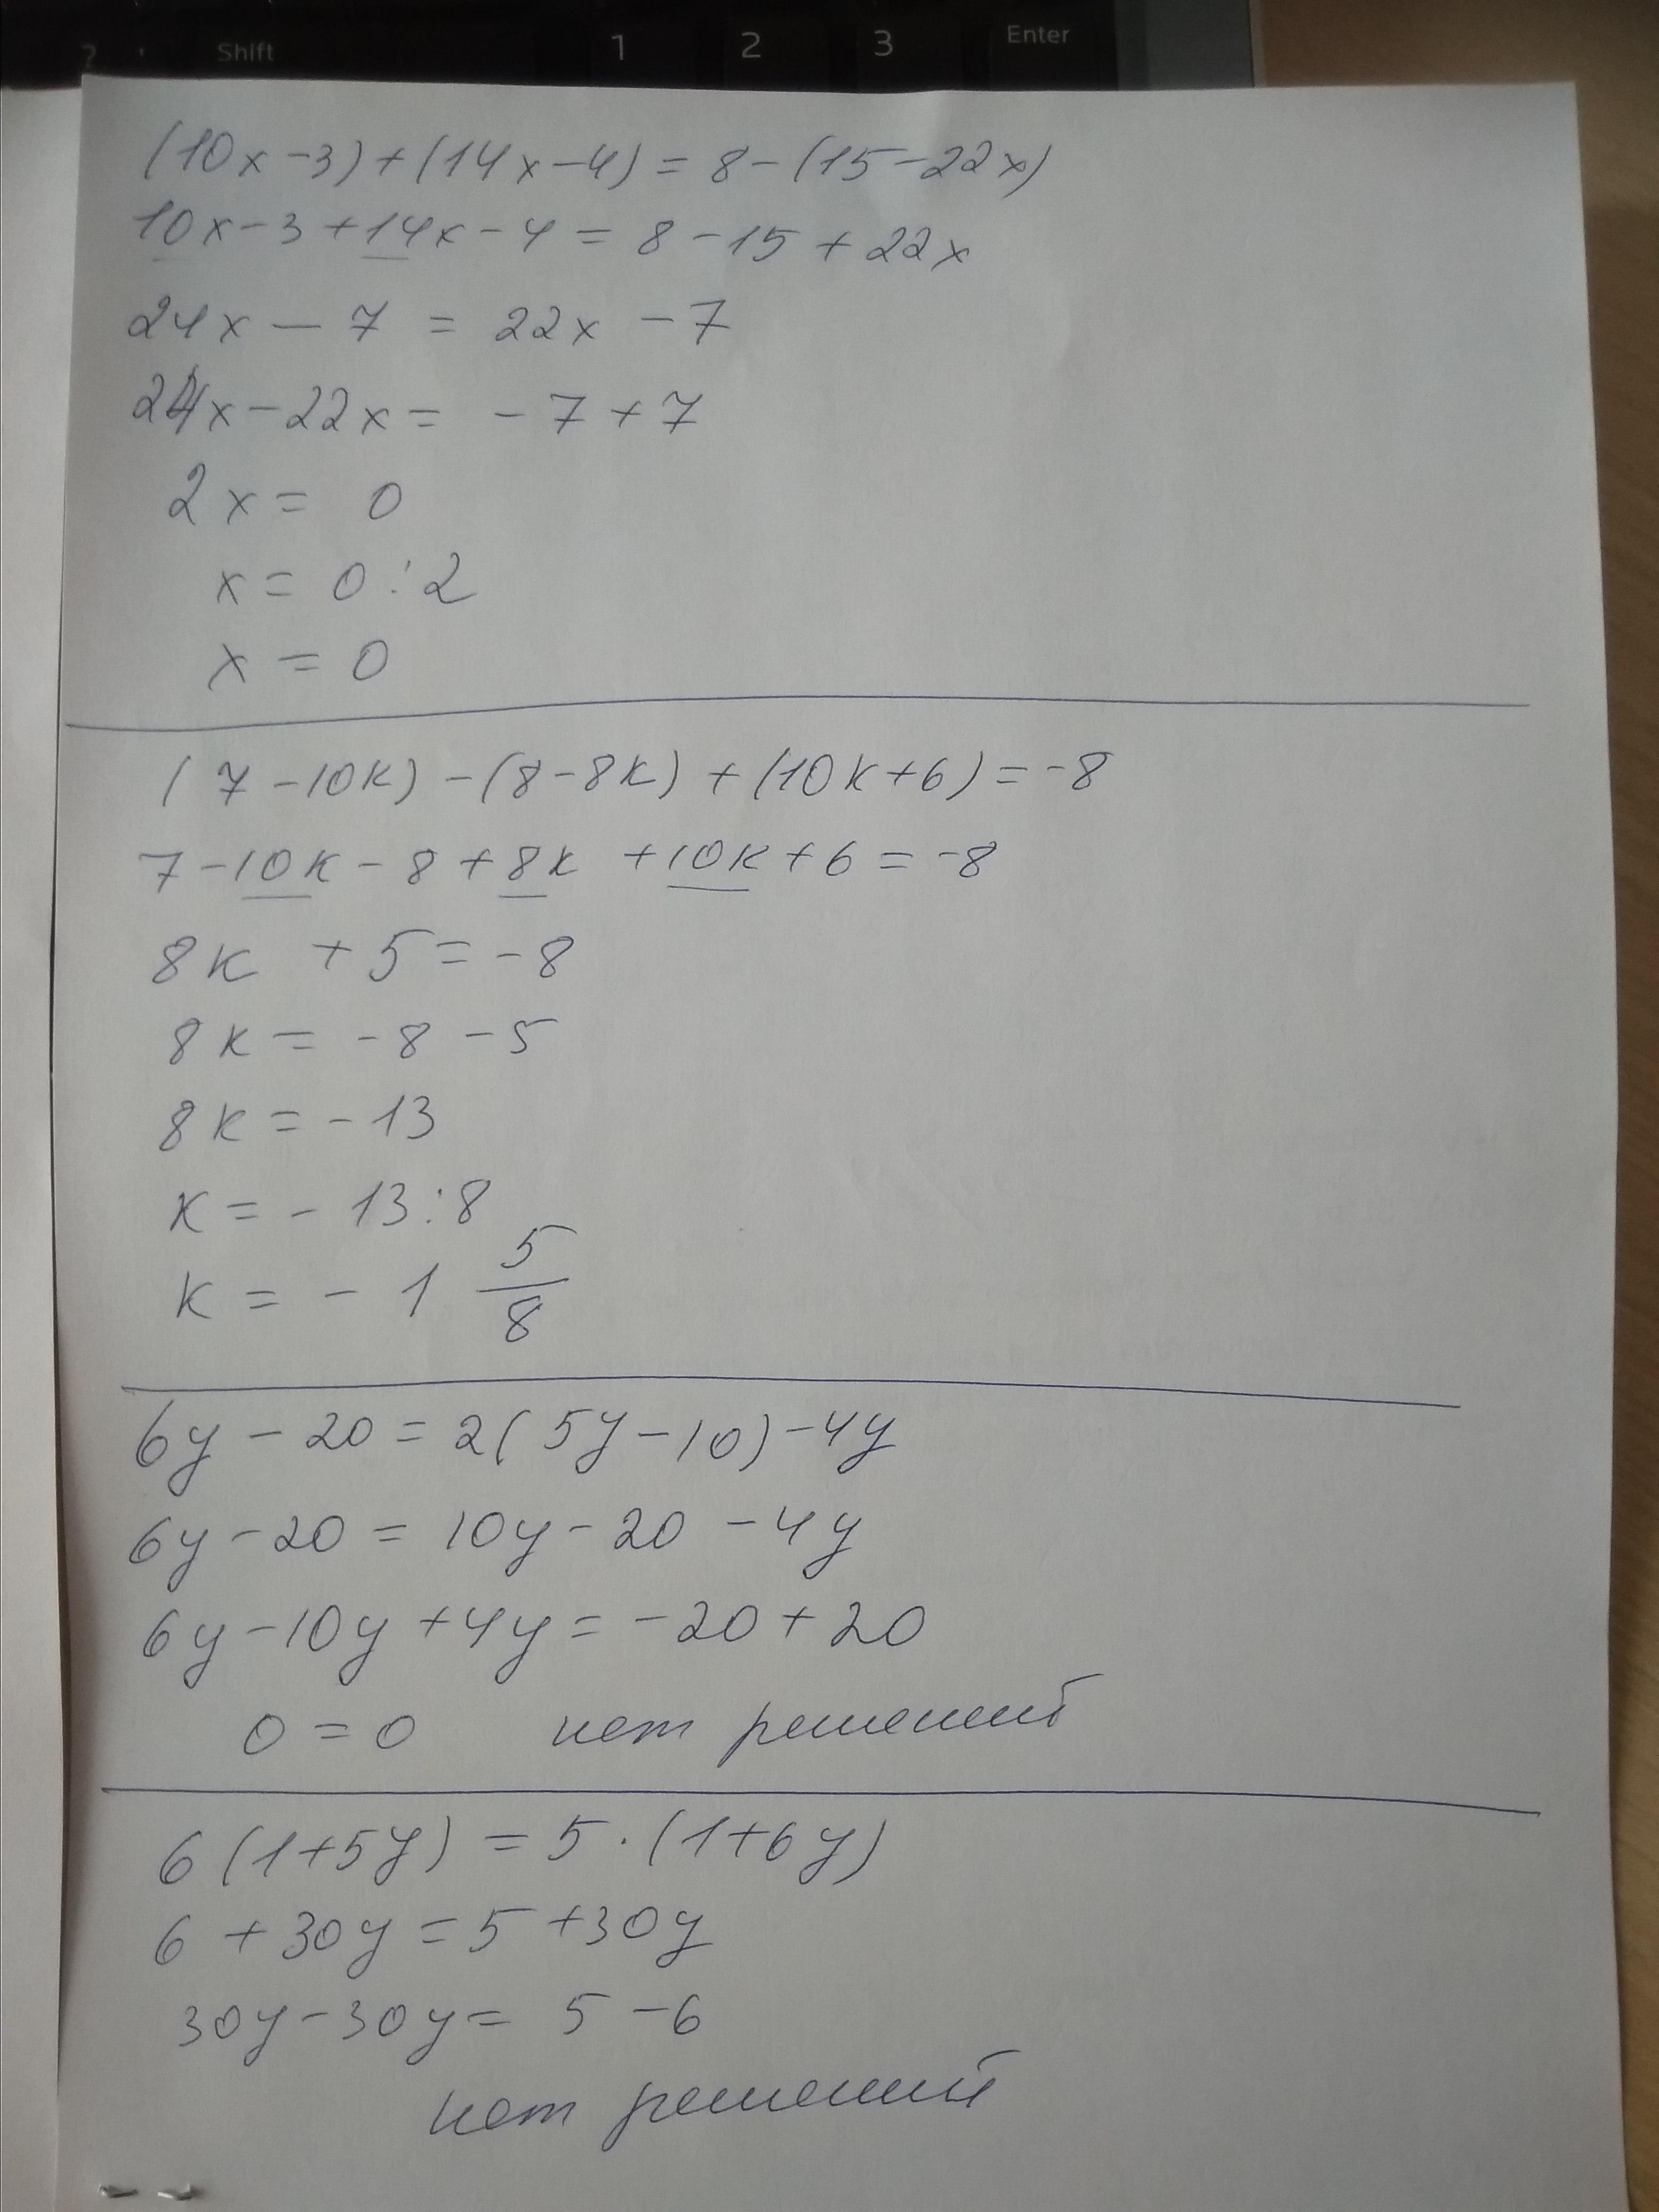 ? ' Shift 1 2 3 Enter
(10x-3)+(14x-4)=8-(15-22x)
10x-3+14x-4=8-15+22x
24x-7=22x-7
24x-22x=-7+7
2x=0
x=0:2
x=0
(7-10к)-(8-8к)+(10к+6)=-8
7-10к-8+8к+10к+6=-8
8к+5=-8
8к=-8-5
8к=-13
к=-13:8
к=-1 5/8
6y-20=2(5y-10)-4y
6y-20=10y-20-4y
6y-10y+4y=-20+20
0=0 нет решений
6(1+5y)=5·(1+6y)
6+30y=5+30y
30y-30y=5-6
нет решений